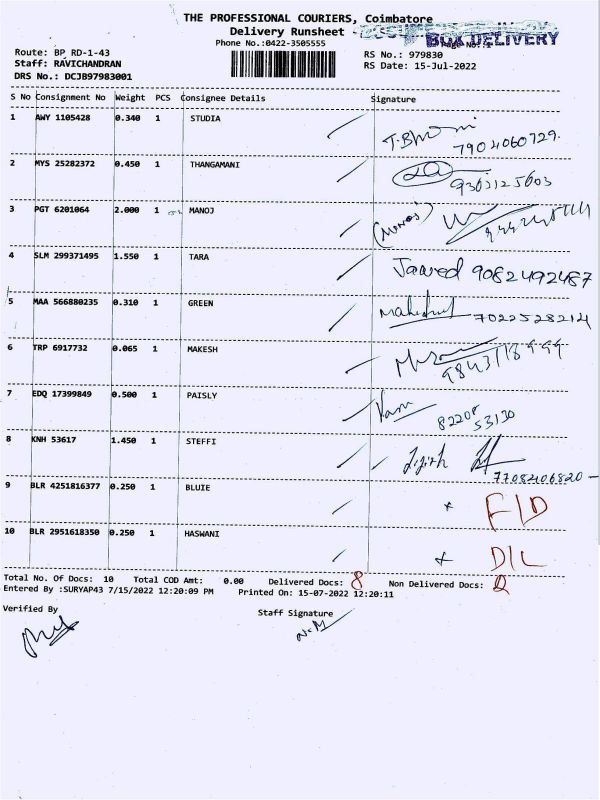 THE PROFESSIONAL COURIERS, Coimbatore
Delivery Runsheet -
BOX DELIVERY
Phone No.:0422-3505555
Page No.:1
Route: BP RD-1-43
RS No.: 979830
Staff: RAVICHANDRAN
RS Date: 15-Jul-2022
DRS No.: DCJB97983001
S No Consignment No Weight PCS Consignee Details Signature
1 AWY 1105428 0.340 1 STUDIA 7904060729.
2 MYS 25282372 0.450 1 THANGAMANI 9363125603
3 PGT 6201064 2.000 1 MANOJ (Manoj)
4 SLM 299371495 1.550 1 TARA Jawed 9082492487
5 MAA 566880235 0.310 1 GREEN 7022528214
6 TRP 6917732 0.065 1 MAKESH
7 EDQ 17399849 0.500 1 PAISLY 82208 53130
8 KNH 53617 1.450 1 STEFFI 7708406820
9 BLR 4251816377 0.250 1 BLUIE F/D
10 BLR 2951618350 0.250 1 HASWANI D/L
Total No. Of Docs: 10 Total COD Amt: 0.00 Delivered Docs: 8 Non Delivered Docs: 2
Entered By :SURYAP43 7/15/2022 12:20:09 PM Printed On: 15-07-2022 12:20:11
Verified By Staff Signature